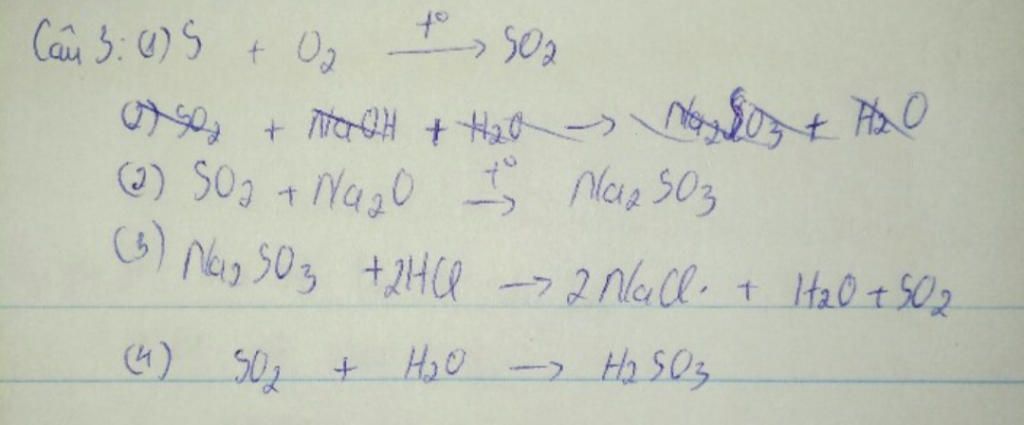 Câu 3: (1) S + O2 t° → SO2
(2) SO2 + NaOH + H2O → Na2SO3 + H2O
(2) SO2 + Na2O t° → Na2SO3
(3) Na2SO3 + 2HCl → 2NaCl + H2O + SO2
(4) SO2 + H2O → H2SO3